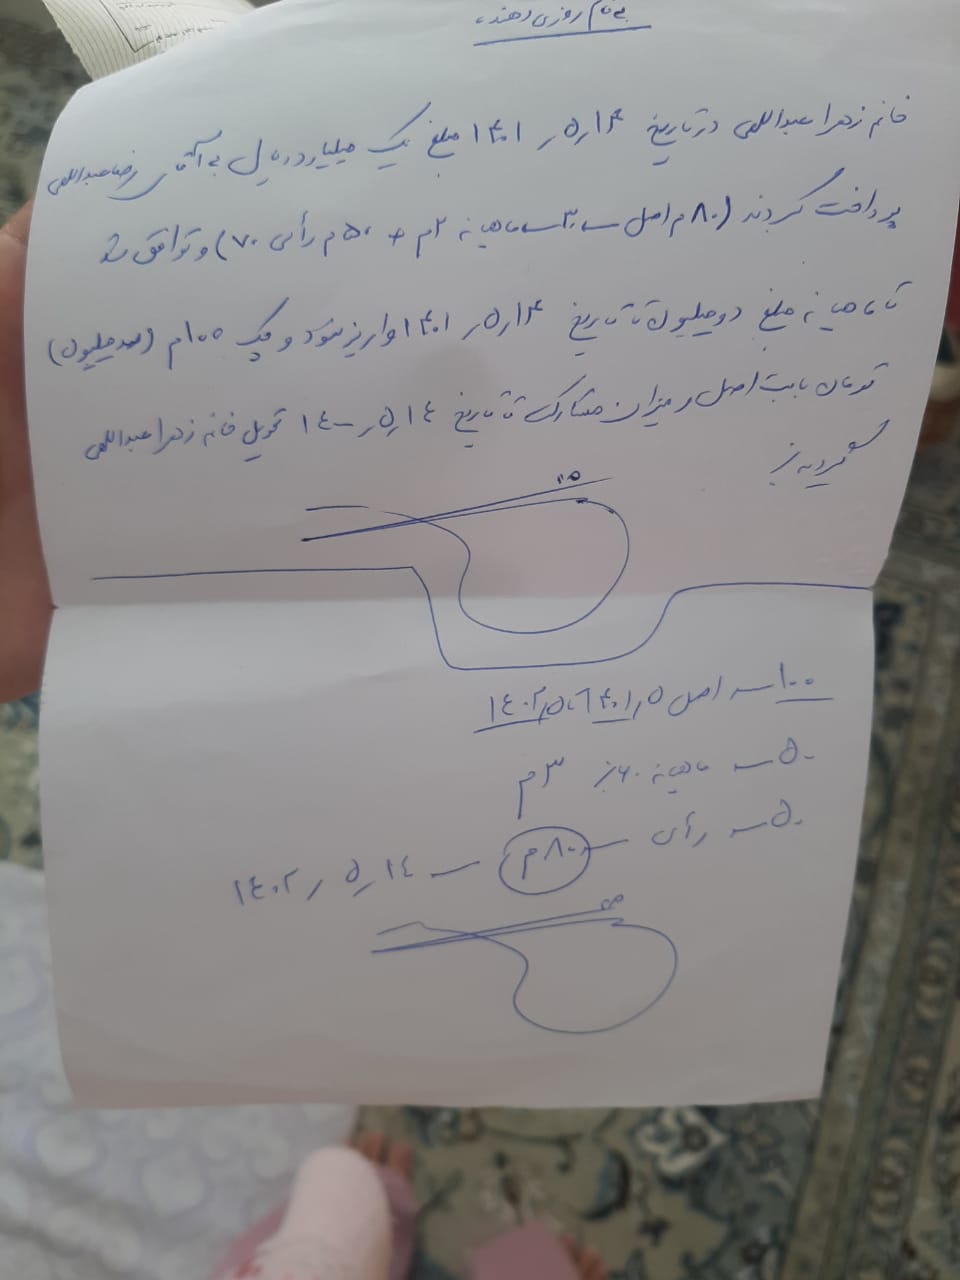 بنام روزی دهنده
خانم زهرا عبداللهی در تاریخ ۱۴۰۱ر۵ر۱۴ مبلغ یک میلیارد ریال به آقای رضا عبداللهی
پرداخت کردند (۸۰م اصل ← ۳۰ ← ماهیانه ۲م + ۵۰م رأس ۷۰) و توافق شد
تا ماهیانه مبلغ دو میلیون تا تاریخ ۱۴۰۱ر۵ر۱۴ واریز شود و چک ۱۰۰م (صد میلیون)
تومان بابت اصل و میزان مشارکت تا تاریخ ۱۴ر۵ر۱۴۰۰ تحویل خانم زهرا عبداللهی
گردید
۱۰۰ ← اصل ۱۴۰۱ر۵ ۱۴۰۲ر۵ر
۵۰ ← ماهیانه ۶۰٪ ۳م
۵۰ ← رأس ← ۸۰م ← ۱۴ر۵ر۱۴۰۲